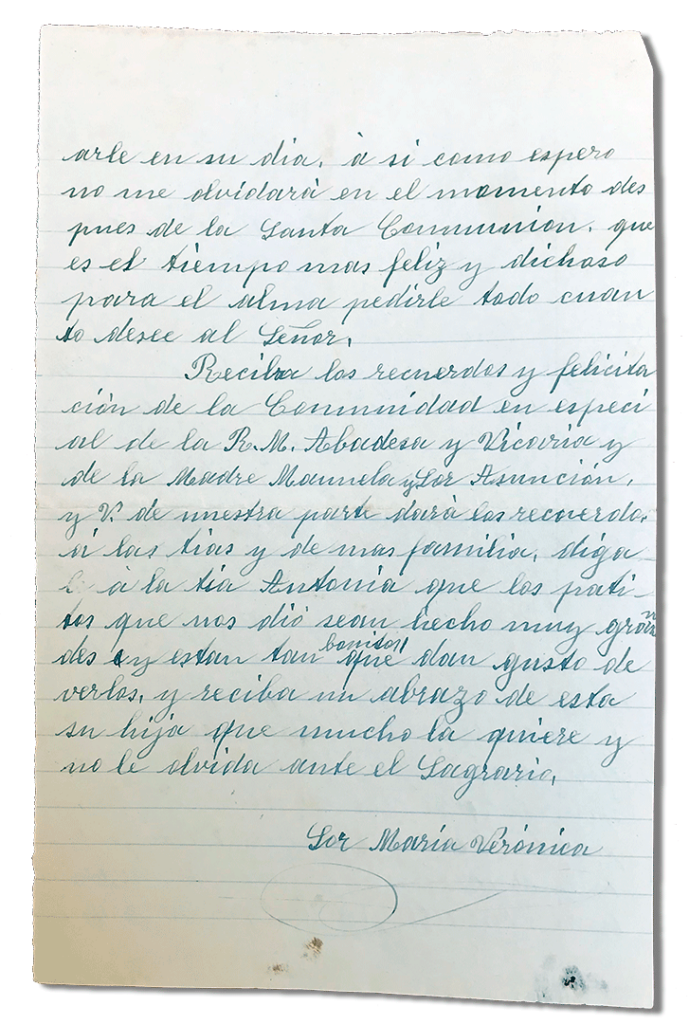 arle en su dia, à si como espero
no me olvidarà en el momento des
pues de la Santa Communion. que
es el tiempo mas feliz y dichoso
para el alma pedirle todo cuan
to desee al Señor.
Reciba los recuerdos y felicita
ción de la Comunidad en especi
al de la R. M. Abadesa y Vicaria y
de la Madre Manuela y Sor Asunción,
y V. de nuestra parte darà los recuerdos
á las tias y de mas familia, diga
le à la tia Antonia que los pati-
tos que nos dió sean hecho muy gran
des y estan tan bonitos que dan gusto de
verlos, y reciba un abrazo de esta
su hija que mucho la quiere y
no le olvida ante el Sagrario,
Sor María Verónica